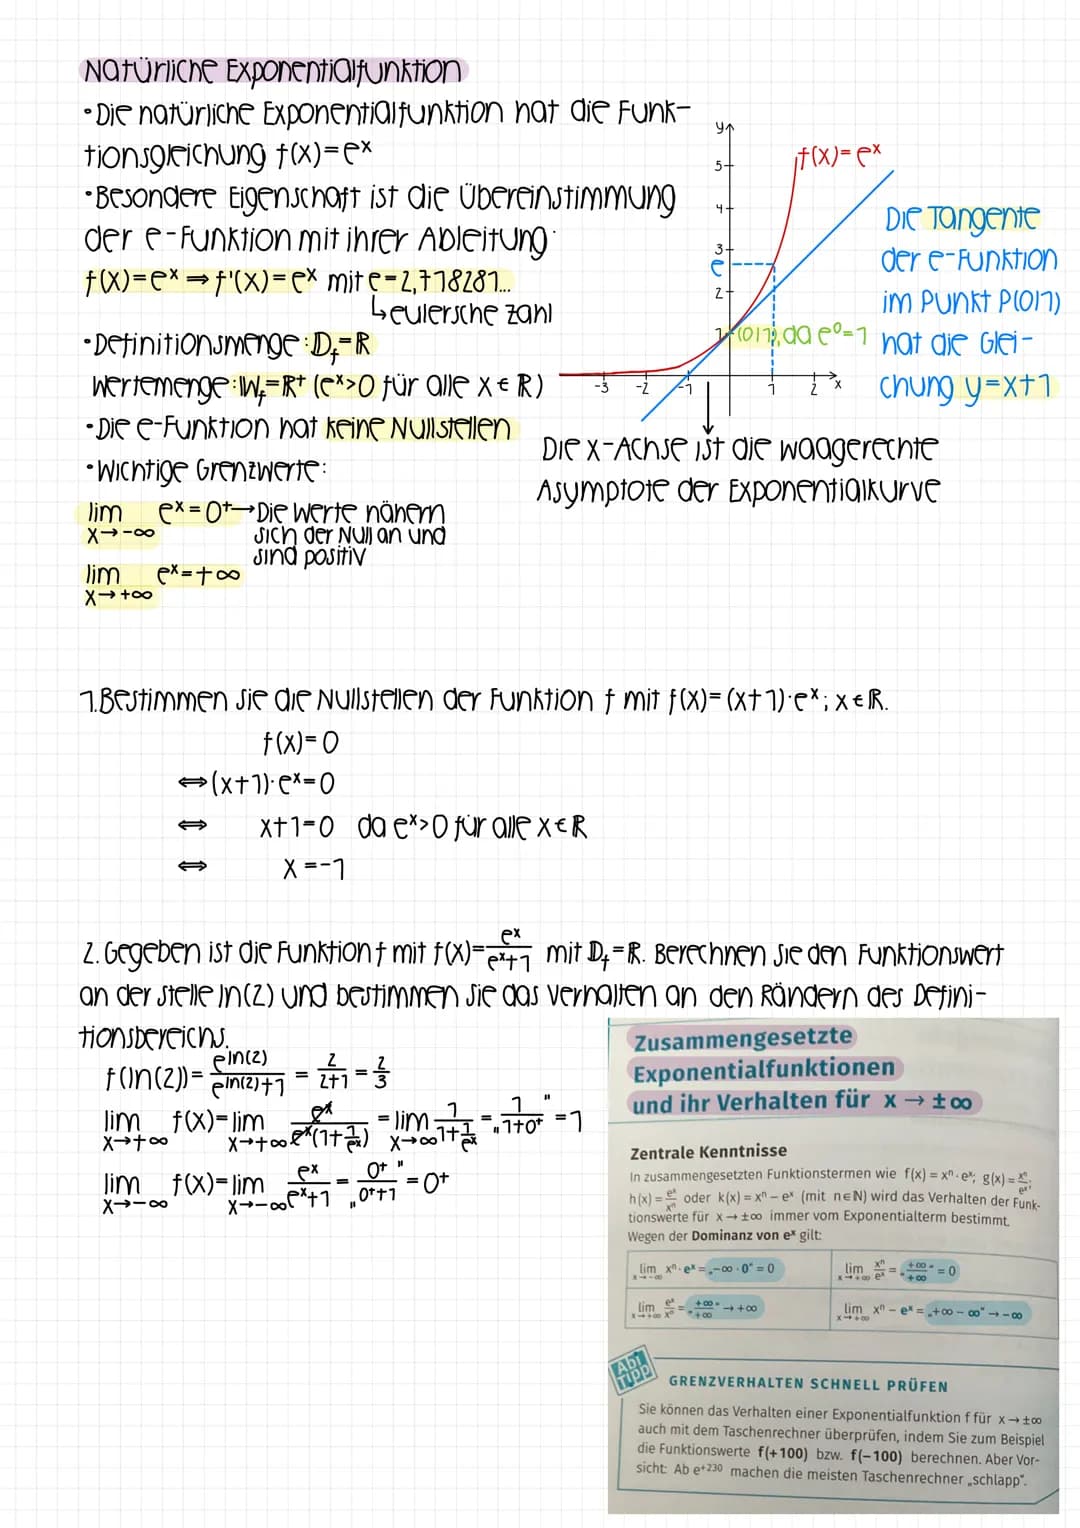 Natürliche Exponentialfunktion
• Die natürliche Exponentialfunktion hat die Funk-
tionsgleichung f(x)=eˣ
• Besondere Eigenschaft ist die Übereinstimmung
der e-Funktion mit ihrer Ableitung
f(x)=eˣ ⇒ f'(x)=eˣ mit e=2,718281...
↳eulersche Zahl
• Definitionsmenge: D_f=ℝ
Wertemenge: W_f=ℝ⁺ (eˣ>0 für alle x∈ℝ)
• Die e-Funktion hat keine Nullstellen
• Wichtige Grenzwerte:
lim eˣ=0⁺→Die Werte nähern
x→-∞ sich der Null an und
sind positiv
lim eˣ=+∞
x→+∞
y
5
4
3
e
2
1
-3 -2 -1 1 2 x
f(x)=eˣ
(0|1), da e⁰=1
Die Tangente
der e-Funktion
im Punkt P(0|1)
hat die Glei-
chung y=x+1
Die x-Achse ist die waagerechte
Asymptote der Exponentialkurve
1. Bestimmen Sie die Nullstellen der Funktion f mit f(x)=(x+1)·eˣ; x∈ℝ.
f(x)=0
⇔(x+1)·eˣ=0
⇔ x+1=0 da eˣ>0 für alle x∈ℝ
⇔ x=-1
2. Gegeben ist die Funktion f mit f(x)=eˣ/(eˣ+1) mit D_f=ℝ. Berechnen Sie den Funktionswert
an der Stelle ln(2) und bestimmen Sie das Verhalten an den Rändern des Defini-
tionsbereichs.
f(ln(2))=e^ln(2)/(e^ln(2)+1) = 2/(2+1) = 2/3
lim x→+∞ f(x)=lim x→+∞ eˣ/(eˣ(1+1/eˣ)) =lim x→∞ 1/(1+1/eˣ) = „1/(1+0⁺)" =1
lim x→-∞ f(x)=lim x→-∞ eˣ/(eˣ+1) = „0⁺/(0⁺+1)" =0⁺
Zusammengesetzte
Exponentialfunktionen
und ihr Verhalten für x → ±∞
Zentrale Kenntnisse
In zusammengesetzten Funktionstermen wie f(x) = xⁿ · eˣ; g(x) = xⁿ/eˣ;
h(x) = eˣ/xⁿ oder k(x) = xⁿ – eˣ (mit n∈ℕ) wird das Verhalten der Funk-
tionswerte für x → ±∞ immer vom Exponentialterm bestimmt.
Wegen der Dominanz von eˣ gilt:
lim x→-∞ xⁿ · eˣ = „-∞ · 0" = 0
lim x→+∞ xⁿ/eˣ = „+∞/+∞" = 0
lim x→+∞ eˣ/xⁿ = „+∞/+∞" → +∞
lim x→+∞ xⁿ – eˣ = „+∞ – ∞" → -∞
Abi
Tipp
GRENZVERHALTEN SCHNELL PRÜFEN
Sie können das Verhalten einer Exponentialfunktion f für x → ±∞
auch mit dem Taschenrechner überprüfen, indem Sie zum Beispiel
die Funktionswerte f(+100) bzw. f(–100) berechnen. Aber Vor-
sicht: Ab e⁺²³⁰ machen die meisten Taschenrechner „schlapp".